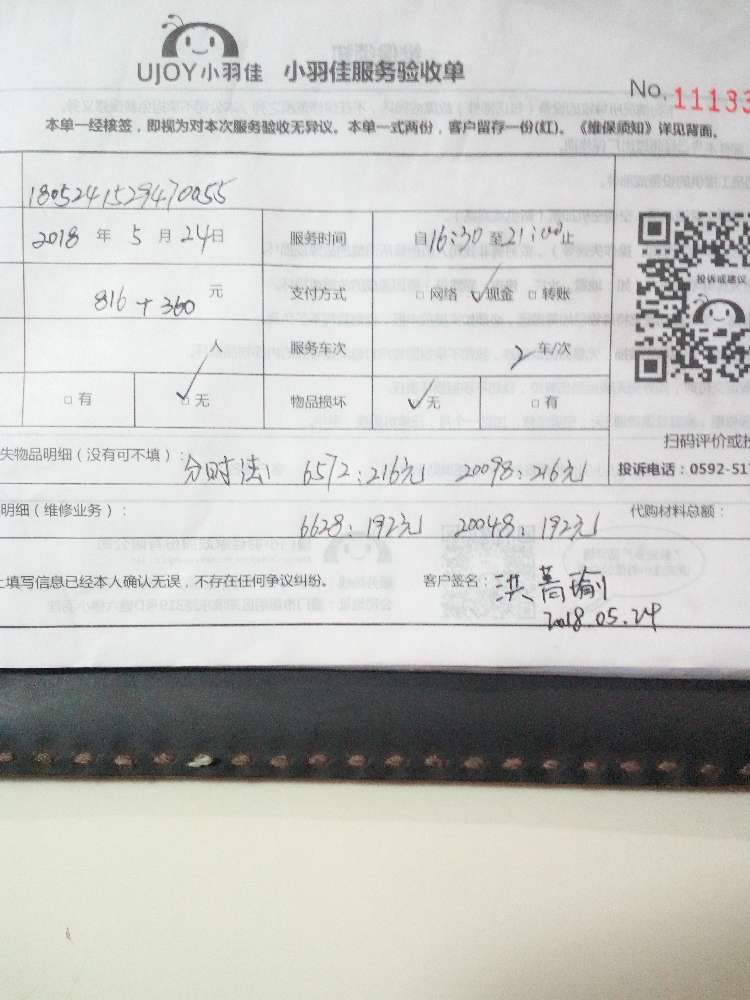 UJOY小羽佳 小羽佳服务验收单
No. 11133
本单一经核签，即视为对本次服务验收无异议。本单一式两份，客户留存一份(红)。《维保须知》详见背面。
1805241529470055
2018 年 5 月 24日 服务时间 自16:30至21:00止
投诉或建议
816 + 360 元 支付方式 □ 网络 ✓现金 □ 转账
人 服务车次 2 车/次
□ 有 ✓无 物品损坏 ✓无 □ 有
扫码评价或投
失物品明细（没有可不填）：分时法: 6572:216元 20098:216元 投诉电话：0592-517
明细（维修业务）： 6628:192元 20048:192元 代购材料总额：
上填写信息已经本人确认无误，不存在任何争议纠纷。 客户签名：洪
2018.05.24